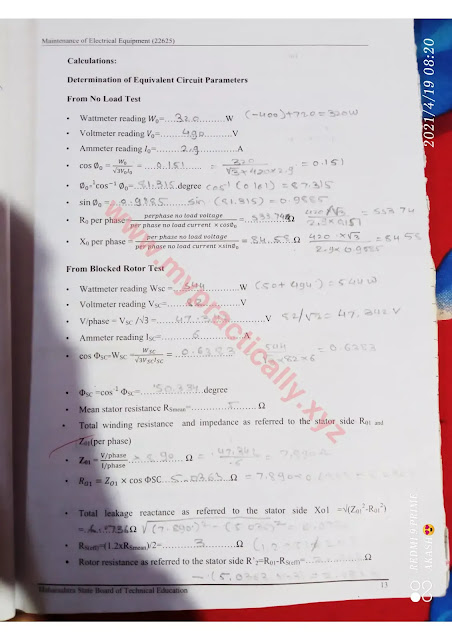 Maintenance of Electrical Equipment (22625)
Calculations:
Determination of Equivalent Circuit Parameters
From No Load Test
• Wattmeter reading W₀=...320...........W (-400)+720=320W
• Voltmeter reading V₀=........V
• Ammeter reading I₀=.......2.9.........A
• cos Ø₀ = W₀/√3V₀I₀ = ...0.151...... = 320/√3×420×2.9 = 0.151
• Ø₀=cos⁻¹ Ø₀=..81.315.degree cos⁻¹
• sin Ø₀ = ..0.9885......sin (81.315) = 0.9885
• R₀ per phase = perphase no load voltage/per phase no load current ×cosØ₀ =
• X₀ per phase = perphase no load voltage/per phase no load current ×sinØ₀ = ..84.58 Ω 420 ×√3/2.9×0.9885 = 84.58
From Blocked Rotor Test
• Wattmeter reading Wsc =....544..........W (50+494) = 544W
• Voltmeter reading VSC=.......82............V
• V/phase = VSC /√3 =......47.342............V 82/√3 = 47.342 V
• Ammeter reading ISC=...........6.........A
• cos ΦSC=WSC WSC/√3VSCISC =....0.6383....... = 0.6383
• ΦSC =cos⁻¹ ΦSC=....50.334......degree
• Mean stator resistance RSmean=.........5........Ω
• Total winding resistance and impedance as referred to the stator side R01 and
Z01(per phase)
• Z01 = V/phase/I/phase 7.890 Ω = 47.342/6 = 7.890
• R01 = Z01 × cos ΦSC 5.0363 Ω = 7.890×
• Total leakage reactance as referred to the stator side Xo1 =√(Z01²-R01²)
=
• RS(eff)=(1.2xRSmean)/2=..........3..........Ω
• Rotor resistance as referred to the stator side R'2=R01-RS(eff)= Ω
Maharashtra State Board of Technical Education
13
www.mypractically.xyz
2021/4/19 08:20
REDMI 9 PRIME
AKASH